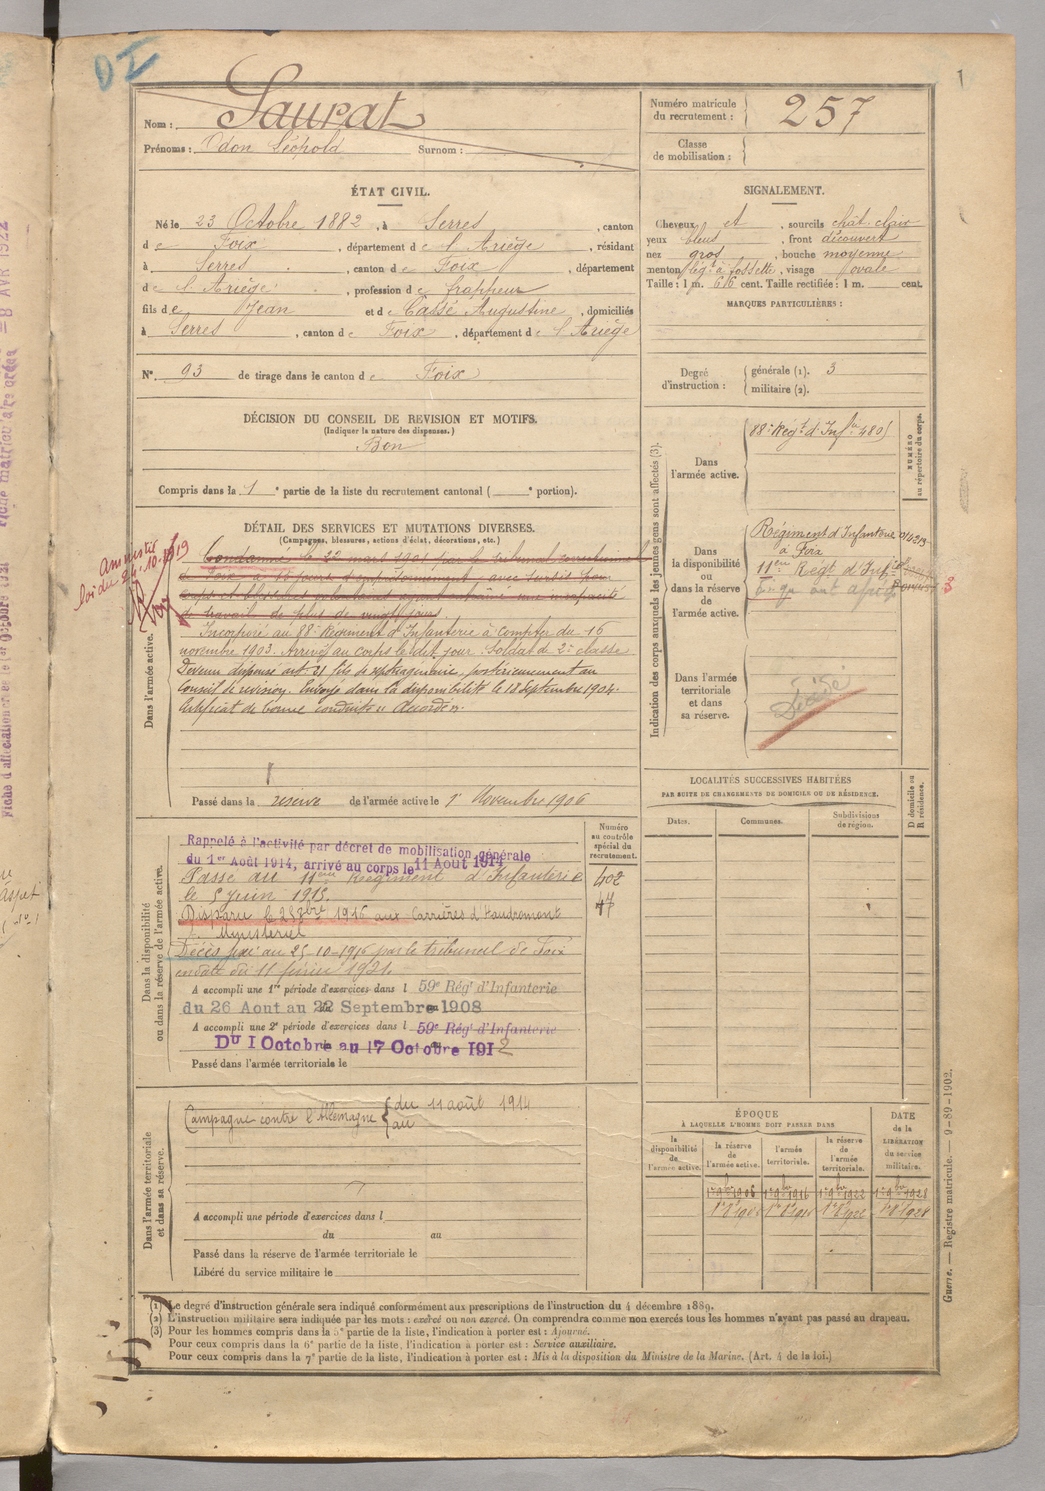 DI
1
Nom : Saurat
Prénoms : Odon Léopold Surnom :
Numéro matricule du recrutement : 257
Classe de mobilisation :
ÉTAT CIVIL.
Né le 23 Octobre 1882, à Serres, canton
de Foix, département de l'Ariège, résidant
à Serres, canton de Foix, département
de l'Ariège, profession de frappeur
fils de Jean et de Cassé Augustine, domiciliés
à Serres, canton de Foix, département de l'Ariège
N° 93 de tirage dans le canton de Foix
SIGNALEMENT.
Cheveux et, sourcils chât. clair
yeux bleus, front découvert
nez gros, bouche moyenne
menton lég. à fossette, visage ovale
Taille : 1 m. 616 cent. Taille rectifiée : 1 m. cent.
MARQUES PARTICULIÈRES :
Degré d'instruction : générale (1). 3
militaire (2).
DÉCISION DU CONSEIL DE REVISION ET MOTIFS.
(Indiquer la nature des dispenses.)
Bon
Compris dans la 1e partie de la liste du recrutement cantonal ( e portion).
DÉTAIL DES SERVICES ET MUTATIONS DIVERSES.
(Campagnes, blessures, actions d'éclat, décorations, etc.)
Amnistié
loi du 24.10.1919
Dans l'armée active.
Condamné le 22 mars 1901 par le Tribunal correctionnel
de Foix à 15 jours d'emprisonnement, avec sursis pour
coups et blessures volontaires ayant entraîné une incapacité
de travail de plus de vingt jours
Incorporé au 88e Régiment d'Infanterie à compter du 16
novembre 1903. Arrivé au corps le dit jour. Soldat de 2e classe
Devenu dispensé art. 21 fils de septuagénaire, postérieurement au
Conseil de revision. Envoyé dans la disponibilité le 18 Septembre 1904.
Certificat de bonne conduite "Accordé".
Passé dans la réserve de l'armée active le 1er Novembre 1906
Dans la disponibilité ou dans la réserve de l'armée active.
Rappelé à l'activité par décret de mobilisation générale
du 1er Août 1914, arrivé au corps le 11 Août 1914
Passé au 11eme Régiment d'Infanterie
le 5 Juin 1915.
Disparu le 25 8bre 1916 aux Carrières d'Haudremont
Ministériel
Décès fixé au 25-10-1916 par le tribunal de Foix
en date du 11 février 1921.
A accompli une 1re période d'exercices dans l 59e Régt d'Infanterie
du 26 Aout au 22 Septembre 1908
A accompli une 2e période d'exercices dans l 59e Régt d'Infanterie
Du 1 Octobre au 17 Octobre 1912
Passé dans l'armée territoriale le
Numéro au contrôle spécial du recrutement.
402
47
Dans l'armée territoriale et dans sa réserve.
Campagne contre l'Allemagne du 11 août 1914
au
A accompli une période d'exercices dans l
du au
Passé dans la réserve de l'armée territoriale le
Libéré du service militaire le
Indication des corps auxquels les jeunes gens sont affectés (3).
NUMÉRO au répertoire du corps.
Dans l'armée active.
88e Régt d'Infie 4805
Dans la disponibilité ou dans la réserve de l'armée active.
Régiment d'Infanterie
à Foix
11eme Régt d'Inf.
Dans l'armée territoriale et dans sa réserve.
Décédé
LOCALITÉS SUCCESSIVES HABITÉES
PAR SUITE DE CHANGEMENTS DE DOMICILE OU DE RÉSIDENCE.
Dates. Communes. Subdivisions de région. D domicile ou R résidence.
ÉPOQUE
À LAQUELLE L'HOMME DOIT PASSER DANS
DATE de la LIBÉRATION du service militaire.
la disponibilité de l'armée active. la réserve de l'armée active. l'armée territoriale. la réserve de l'armée territoriale.
1er 9bre 1906 1er 9bre 1916 1er 9bre 1922 1er 9bre 1928
(1) Le degré d'instruction générale sera indiqué conformément aux prescriptions de l'instruction du 4 décembre 1889.
(2) L'instruction militaire sera indiquée par les mots : exercé ou non exercé. On comprendra comme non exercés tous les hommes n'ayant pas passé au drapeau.
(3) Pour les hommes compris dans la 5e partie de la liste, l'indication à porter est : Ajourné.
Pour ceux compris dans la 6e partie de la liste, l'indication à porter est : Service auxiliaire.
Pour ceux compris dans la 7e partie de la liste, l'indication à porter est : Mis à la disposition du Ministre de la Marine. (Art. 4 de la loi.)
Guerre. — Registre matricule. — 9-89-1902.